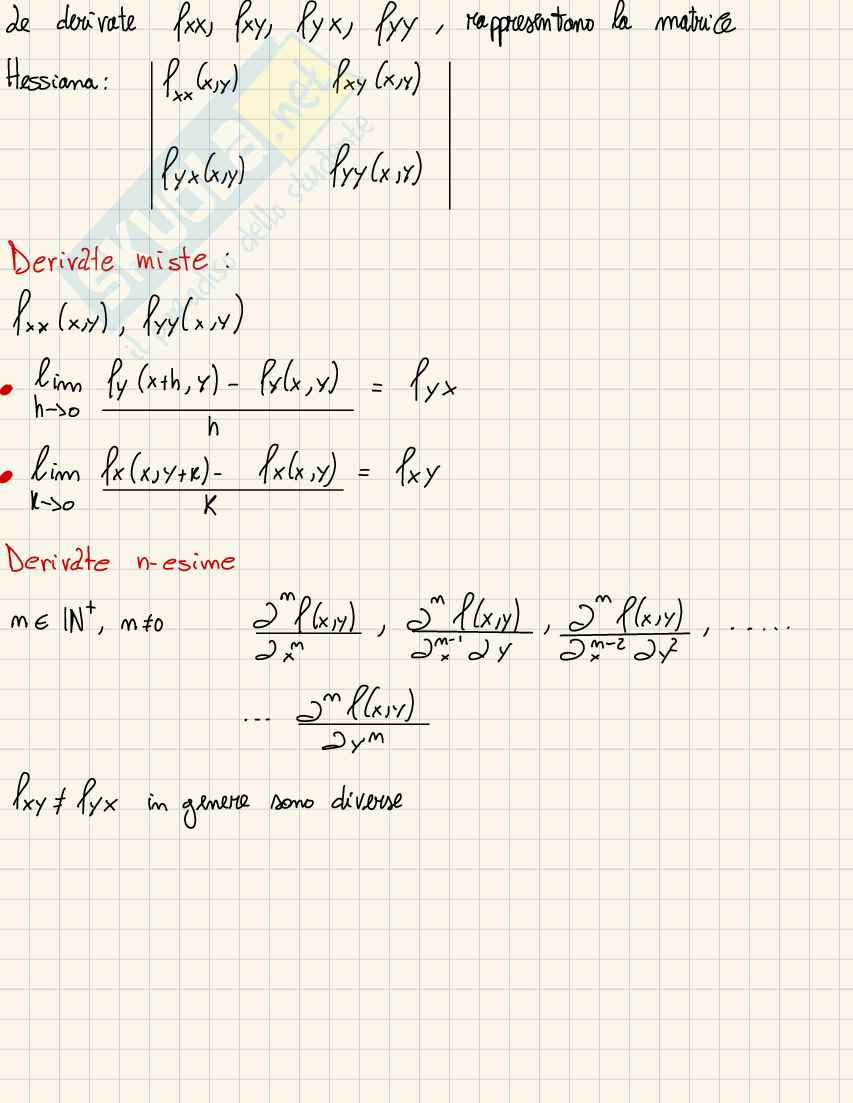 Le derivate fxx, fxy, fyx, fyy, rappresentano la matrice
Hessiana: | fxx(x,y) fxy(x,y) |
| fyx(x,y) fyy(x,y) |
SKUOLA.net
il paradiso dello studente
Derivate miste:
fxx(x,y), fyy(x,y)
• lim h->0 fy(x+h,y) - fy(x,y) / h = fyx
• lim k->0 fx(x,y+k) - fx(x,y) / k = fxy
Derivate n-esime
m ∈ IN⁺, m≠0 ∂ᵐf(x,y)/∂xᵐ, ∂ᵐf(x,y)/∂xᵐ⁻¹∂y, ∂ᵐf(x,y)/∂xᵐ⁻²∂y², .....
... ∂ᵐf(x,y)/∂yᵐ
fxy ≠ fyx in genere sono diverse